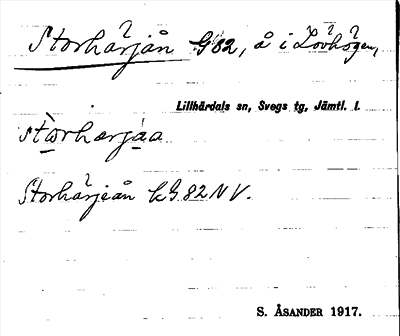 Storhärjån G 82, å i Lovhögen,
Lillhärdals sn, Svegs tg, Jämtl. l.
storhærjåa
Storhärjeån kG 82 NV.
S. ÅSANDER 1917.